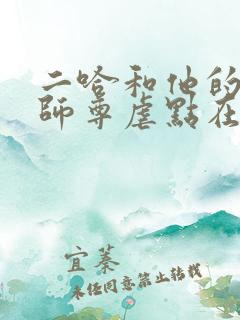 二哈和他的
師尊虐點在
宜蓁
未经同意禁止转载